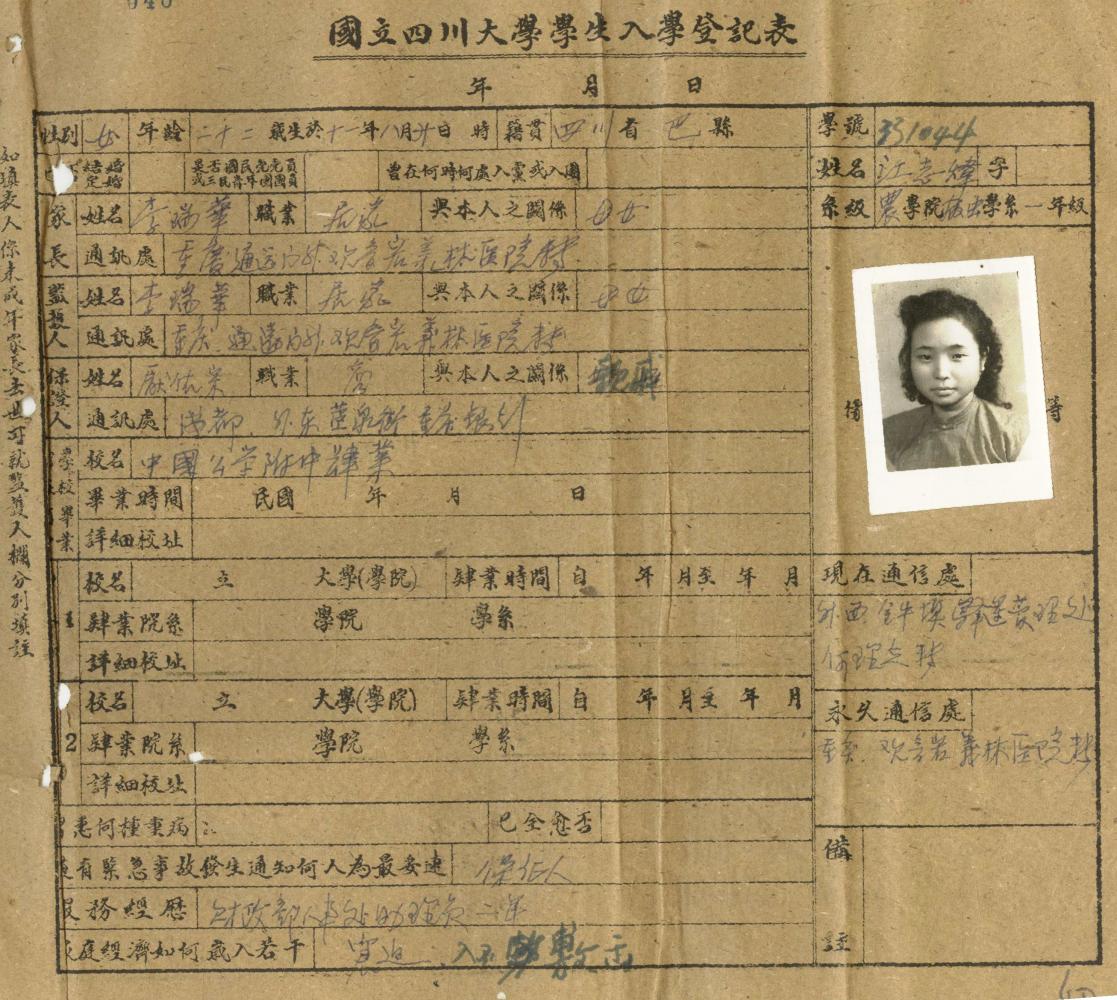 國立四川大學學生入學登記表
年 月 日
性別 女 年齡 二十二 歲生於十一年八月廿日 時 籍貫 四川省 巴縣
學號 331044
結婚 定婚 是否國民党党員或三民青年團團員 曾在何時何處入黨或入團
姓名 江志煒 字
家長 姓名 李瑞華 職業 与本人之關係 母女
系級 農學院 學系一年級
通訊處 重慶通远门外观音岩義林医院轉
監護人 姓名 李瑞華 職業 與本人之關係 母女
通訊處 重庆 通遠门外观音岩義林医院轉
保證人 姓名 職業 與本人之關係 親戚
通訊處 成都 外东
學校畢業 校名 中國公学附中肄業
畢業時間 民國 年 月 日
詳細校址
1 校名 立 大學(學院) 肄業時間 自 年 月至 年 月
現在通信處
肄業院系 學院 學系
外西金牛壩
詳細校址
2 校名 立 大學(學院) 肄業時間 自 年 月至 年 月
永久通信處
肄業院系 學院 學系
重庆 观音岩義林医院轉
詳細校址
患何種重病 已全愈否
備註
有緊急事故發生通知何人為最妥速 保证人
服務經歷 財政部人事处助理員二年
家庭經濟如何歲入若干 入不敷出
如填表人係未成年家長去世可就監護人欄分别填註